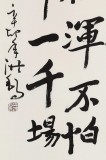 渾不怕
一千場
辛年